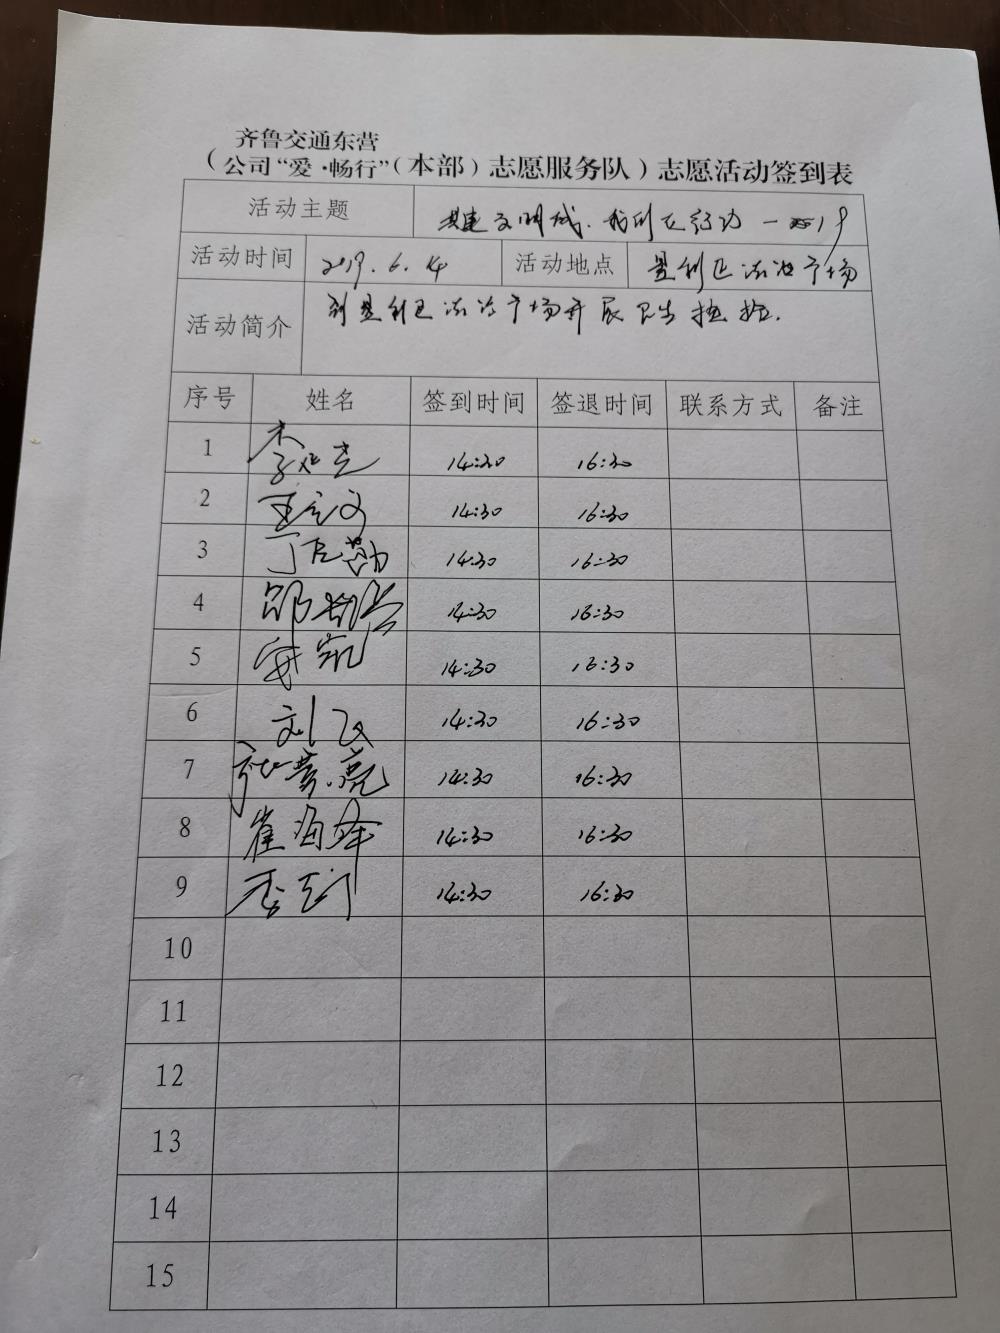 齐鲁交通东营
(公司“爱·畅行”(本部)志愿服务队)志愿活动签到表
活动主题 共建文明城.我们在行动一
活动时间 2019.6.14 活动地点 垦利区 市场
活动简介 到垦利区 市场开展卫生
序号 姓名 签到时间 签退时间 联系方式 备注
1 李 14:30 16:30
2 王 文 14:30 16:30
3 丁 勘 14:30 16:30
4 邵 14:30 16:30
5 14:30 16:30
6 刘飞 14:30 16:30
7 亮 14:30 16:30
8 崔海峰 14:30 16:30
9 李 14:30 16:30
10
11
12
13
14
15